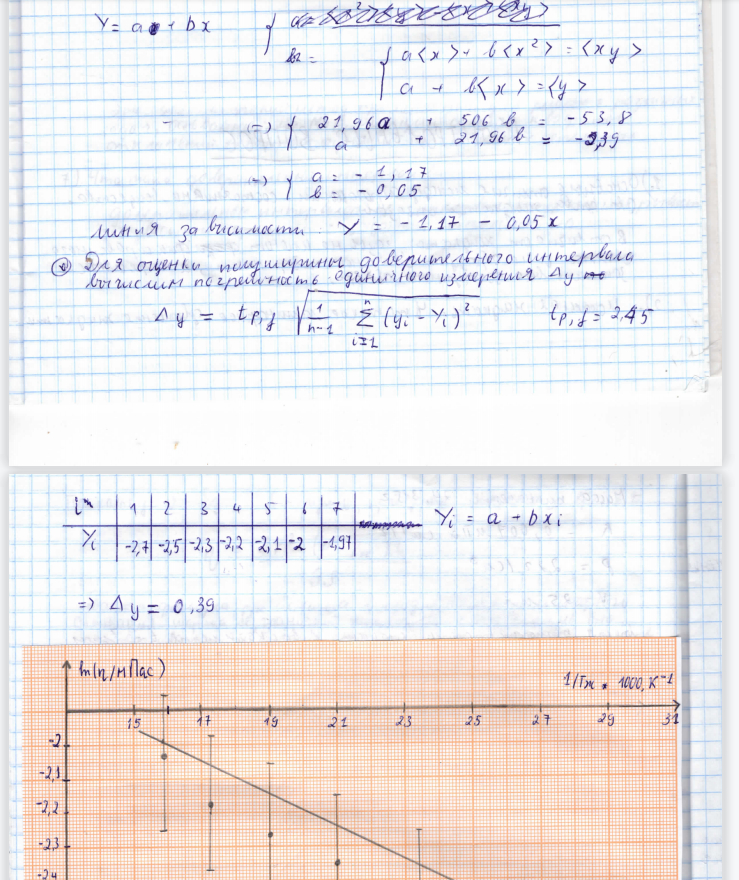 Y = a + bx
a⟨x⟩ + b⟨x²⟩ = ⟨xy⟩
a + b⟨x⟩ = ⟨y⟩
=> { 21,96a + 506 b = -53,8
a + 21,96 b = -2,39
=> { a = - 1,17
b = - 0,05
линия зависимости Y = - 1,17 - 0,05x
Для оценки полуширины доверительного интервала
вычислим погрешность единичного измерения Δy
Δy = tp,f √ 1/n-1 n Σ i=1 (yi - Yi)² tp,f = 2,45
i 1 2 3 4 5 6 7
Yi -2,7 -2,5 -2,3 -2,2 -2,1 -2 -1,97 Yi = a + bxi
=> Δy = 0,39
ln(η/мПас)
1/Tж * 1000, К⁻¹
15 17 19 21 23 25 27 29 31
-2
-2,1
-2,2
-2,3
-2,4